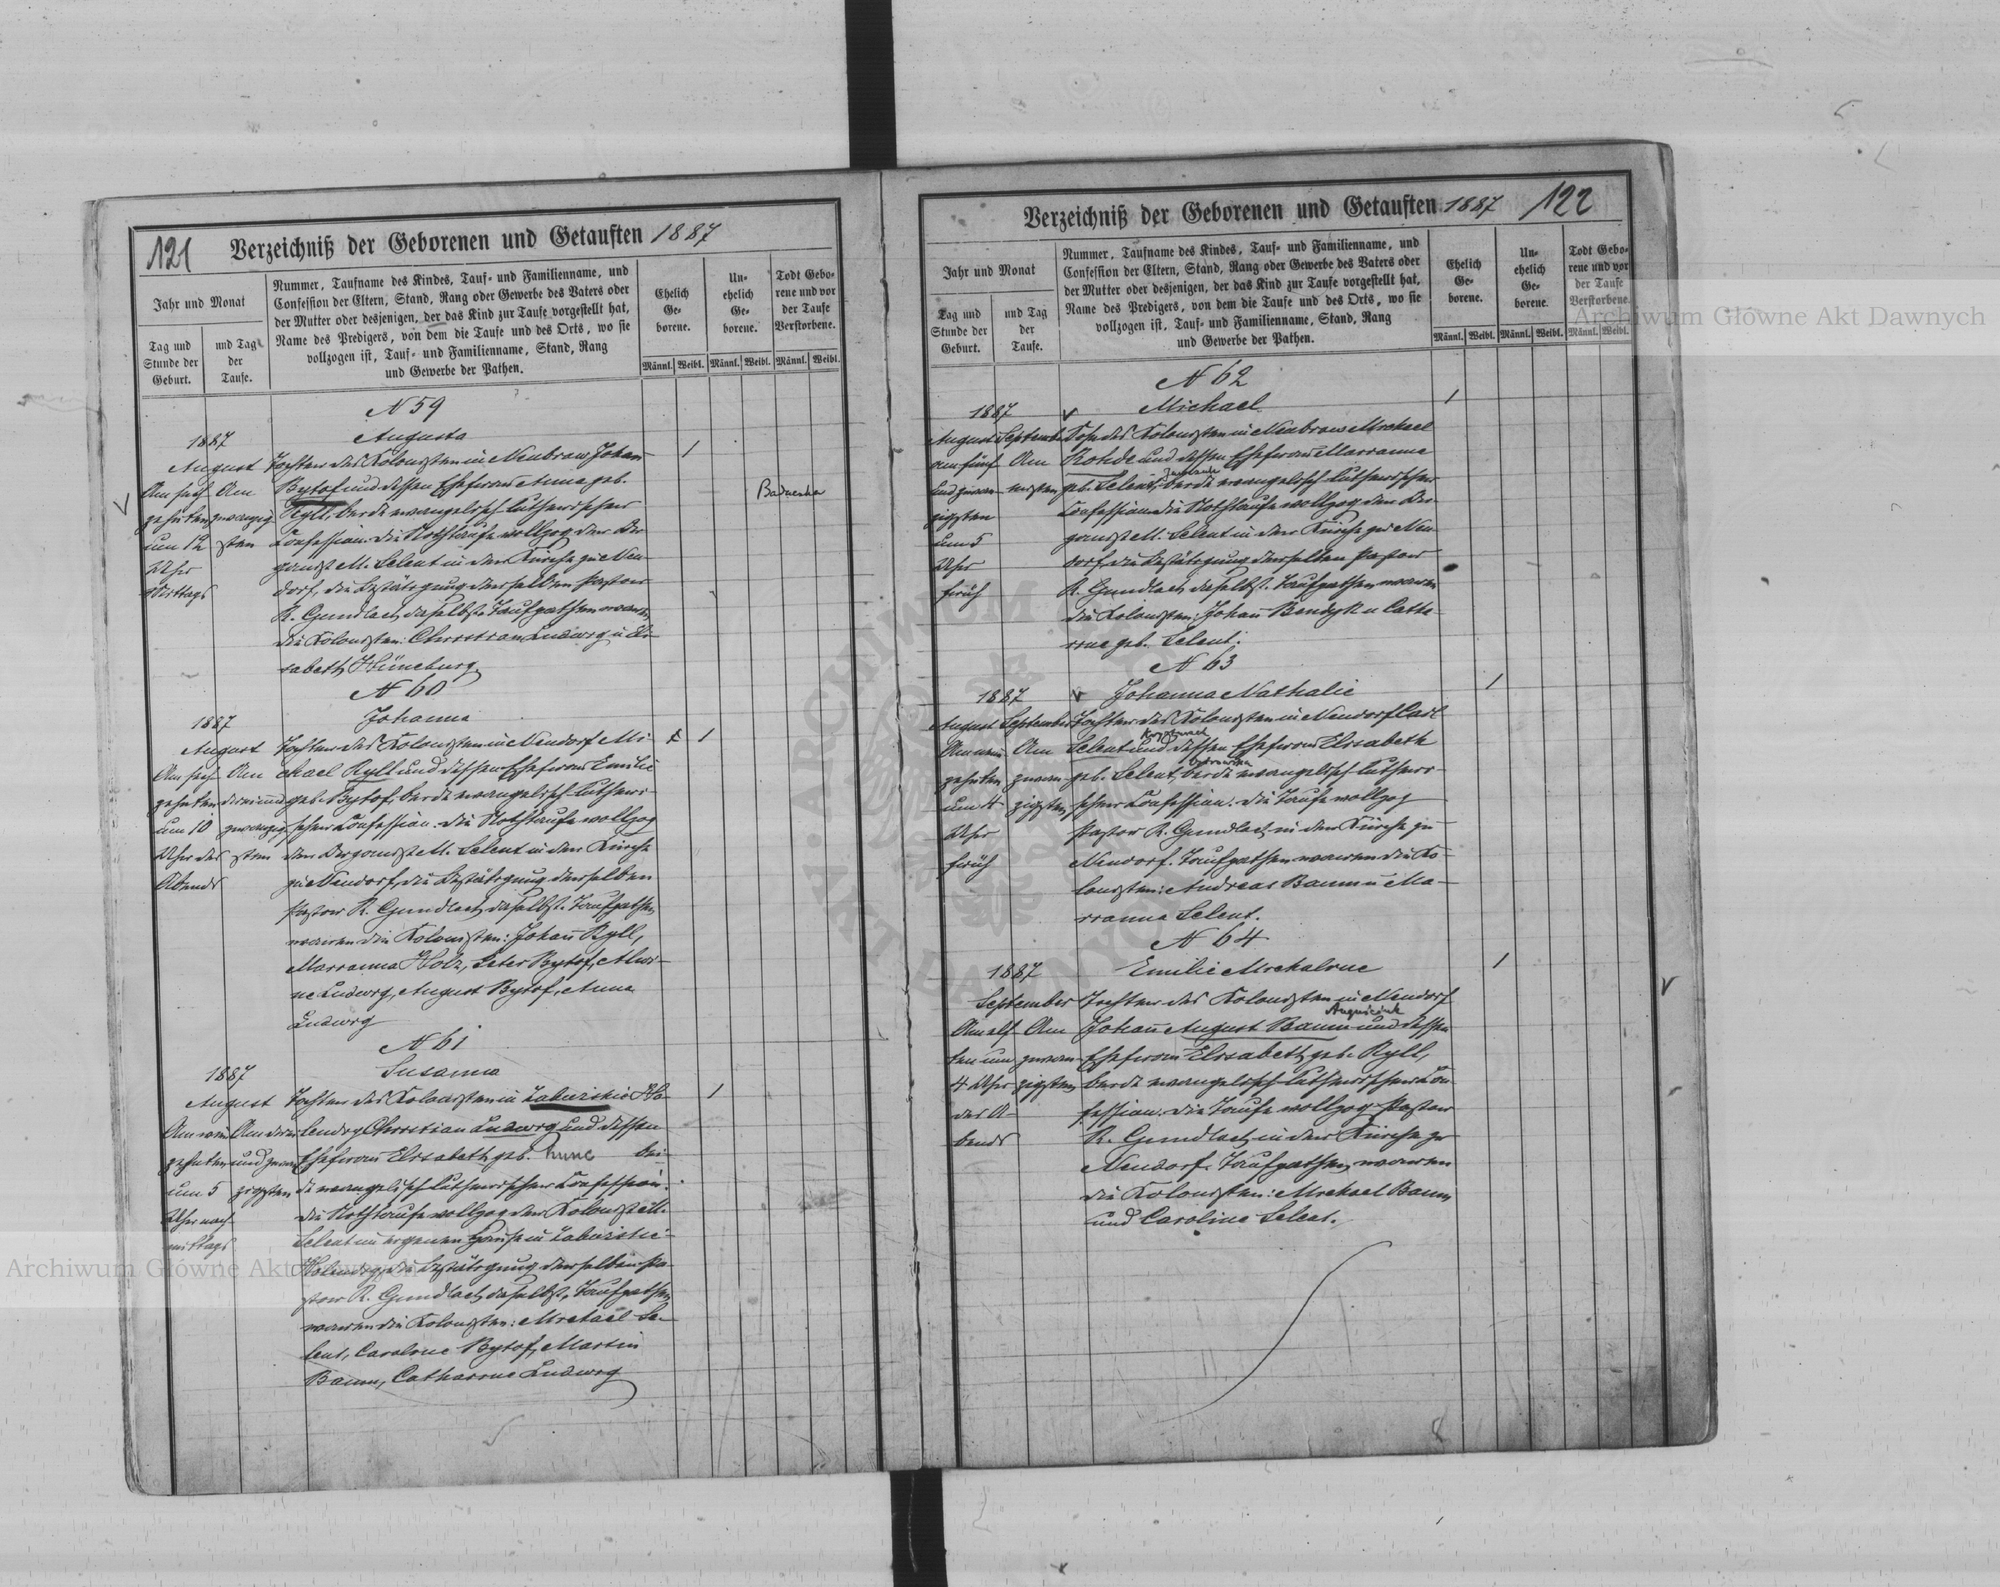 121 Verzeichniß der Geborenen und Getauften 1887
Jahr und Monat
Tag und Stunde der Geburt.
und Tag der Taufe.
Nummer, Taufname des Kindes, Tauf- und Familienname, und
Confession der Eltern, Stand, Rang oder Gewerbe des Vaters oder
der Mutter oder desjenigen, der das Kind zur Taufe vorgestellt hat,
Name des Predigers, von dem die Taufe und des Orts, wo sie
vollzogen ist, Tauf- und Familienname, Stand, Rang
und Gewerbe der Pathen.
Ehelich Geborene.
Unehelich Geborene.
Todt Geborene und vor der Taufe Verstorbene.
Männl. Weibl. Männl. Weibl. Männl. Weibl.
N 59
1887
Augusta
August
Tochter des Kolonisten in Neubrow Johan
1
Am sech Am
Bytof und dessen Ehefrau Anna geb.
zehnten zwanzig
Ryll, beide evangelisch-lutherischer
um 12 sten
Confession. Die Nothtaufe vollzog der Der
Uhr
ganist M. Selent in der Kirche zu Neu-
Mittags
dorf, die Bestätigung derselben Pastor
R. Gundlach daselbst. Taufpathen waren
die Kolonisten: Christian Ludwig u. Eli-
sabeth Hüneburg.
N 60
1887
Johanna
August
Tochter des Kolonisten in Neudorf Mi-
1
Am sech Am
chael Ryll und dessen Ehefrau Emilie
zehnten dreiund
geb. Bytof, beide evangelisch-lutheri-
um 10 zwanzig
scher Confession. Die Nothtaufe vollzog
Uhr des sten
der Organist M. Selent in der Kirche
Abends
zu Neudorf, die Bestätigung derselben
Pastor R. Gundlach daselbst. Taufpathen
waren die Kolonisten: Johann Ryll,
Marianna Holz, Peter Bytof, Alwi-
ne Ludwig, August Bytof, Anna
Ludwig
N 61
1887
Susanna
August
Tochter des Kolonisten in
1
lendry Christian Ludwig und dessen
Ehefrau Elisabeth geb. hunc bei-
um 5 zigsten
de evangelisch-lutherischer Confession.
Uhr nach-
Die Nothtaufe vollzog der Kolonist M.
mittags
Selent im eigenen Hause in
die Bestätigung derselben Pa-
stor R. Gundlach daselbst. Taufpathen
waren die Kolonisten: Michael Se-
lent, Caroline Bytof, Martin
Baum, Catharine Ludwig
Verzeichniß der Geborenen und Getauften 1887 122
Jahr und Monat
Tag und Stunde der Geburt.
und Tag der Taufe.
Nummer, Taufname des Kindes, Tauf- und Familienname, und
Confession der Eltern, Stand, Rang oder Gewerbe des Vaters oder
der Mutter oder desjenigen, der das Kind zur Taufe vorgestellt hat,
Name des Predigers, von dem die Taufe und des Orts, wo sie
vollzogen ist, Tauf- und Familienname, Stand, Rang
und Gewerbe der Pathen.
Ehelich Geborene.
Unehelich Geborene.
Todt Geborene und vor der Taufe Verstorbene.
Männl. Weibl. Männl. Weibl. Männl. Weibl.
N 62
1887
Michael
1
August September
Sohn des Kolonisten in Neubrow Michael
am fünf Am
Rohde und dessen Ehefrau Marianna
und zwan-
geb. Selent, beide evangelisch-lutherischer
zigsten
Confession. Die Nothtaufe vollzog der Der
um 5
ganist M. Selent in der Kirche zu Neu-
Uhr
dorf, die Bestätigung derselben Pastor
früh
R. Gundlach daselbst. Taufpathen waren
die Kolonisten: Johann Bendyk u. Catha-
rine geb. Selent.
N 63
1887
Johanna Nathalie
1
August September
Tochter des Kolonisten in Neudorf Carl
Am neun Am
Selent und dessen Ehefrau Elisabeth
zehnten zwan-
geb. Selent, beide evangelisch-lutheri-
um 4 zigsten
scher Confession. Die Taufe vollzog
Uhr
Pastor R. Gundlach in der Kirche zu
früh
Neudorf. Taufpathen waren die Ko-
lonisten: Andreas Baum u. Ma-
rianna Selent.
N 64
1887
Emilie Michaline
1
September
Tochter des Kolonisten in Neudorf
Am elf Am
Johann August Baum und dessen
ten um zwan-
Ehefrau Elisabeth geb. Ryll,
4 Uhr zigsten
beide evangelisch-lutherischer Con-
des A-
fession. Die Taufe vollzog Pastor
bends
R. Gundlach in der Kirche zu
Neudorf. Taufpathen waren
die Kolonisten: Michael Baum
und Caroline Selent.
Archiwum Główne Akt Dawnych
Archiwum Główne Akt Dawnych